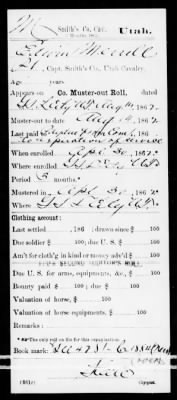 M Smith's Co, Cav. Utah.
(3 Months, 1862.)
Edwin Merrill
Pvt, Capt. Smith's Co., Utah Cavalry.
Age years.
Appears on Co. Muster-out Roll, dated
G.S.L. City U.T. Aug 14, 1862.
Muster-out to date Aug 14, 1862.
Last paid
to expiration of service
When enrolled Apl 30, 1862.
Where enrolled G.S.L. City U.T.
Period 3 months.
Mustered in Apl 30, 1862.
Where G.S.L. City U.T.
Clothing account:
Last settled , 186 ; drawn since $ 100
Due soldier $ 100; due U. S. $ 100
Am't for cloth'g in kind or money adv'd $ 100
Due U. S. for arms, equipments, &c., $ 100
Bounty paid $ 100; due $ 100
Valuation of horse, $ 100
Valuation of horse equipments, $ 100
Remarks:
Book mark:
(361c) Copyist.